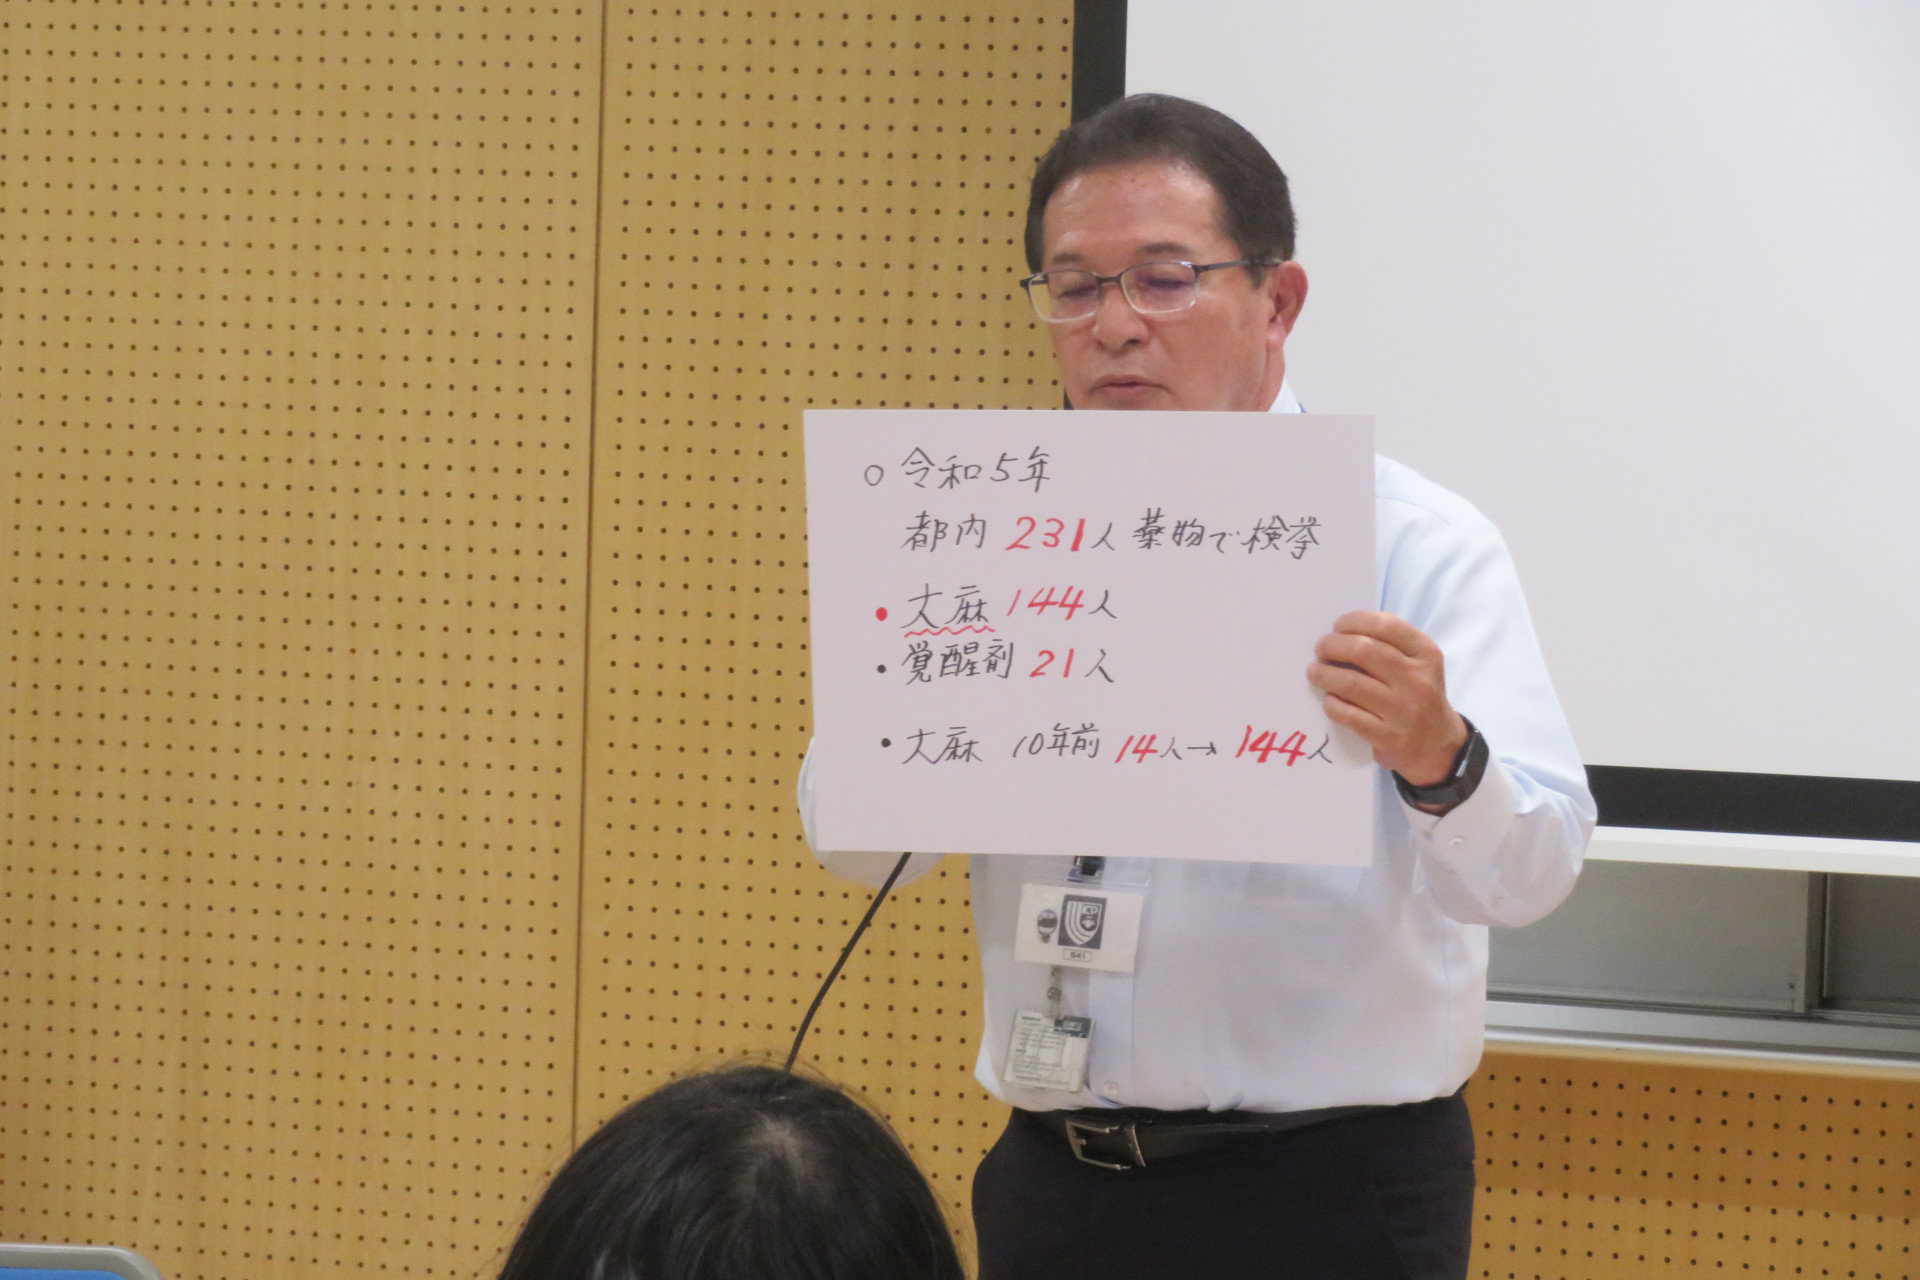 ○ 令和5年
都内 231人 薬物で検挙
• 大麻 144人
• 覚醒剤 21人
• 大麻 10年前 14人→144人